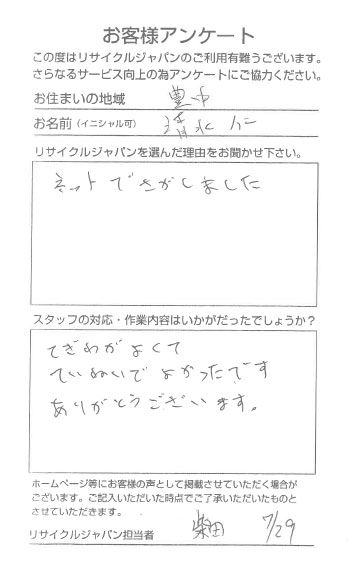 お客様アンケート
この度はリサイクルジャパンのご利用有難うございます。
さらなるサービス向上の為アンケートにご協力ください。
お住まいの地域 豊中
お名前（イニシャル可） 清水
リサイクルジャパンを選んだ理由をお聞かせ下さい。
ネットでさがしました
スタッフの対応・作業内容はいかがだったでしょうか？
てぎわがよくて
ていねいでよかったです
ありがとうございます。
ホームページ等にお客様の声として掲載させていただく場合が
ございます。ご記入いただいた時点でご了承いただいたものと
させていただきます。
リサイクルジャパン担当者 柴田 7/29